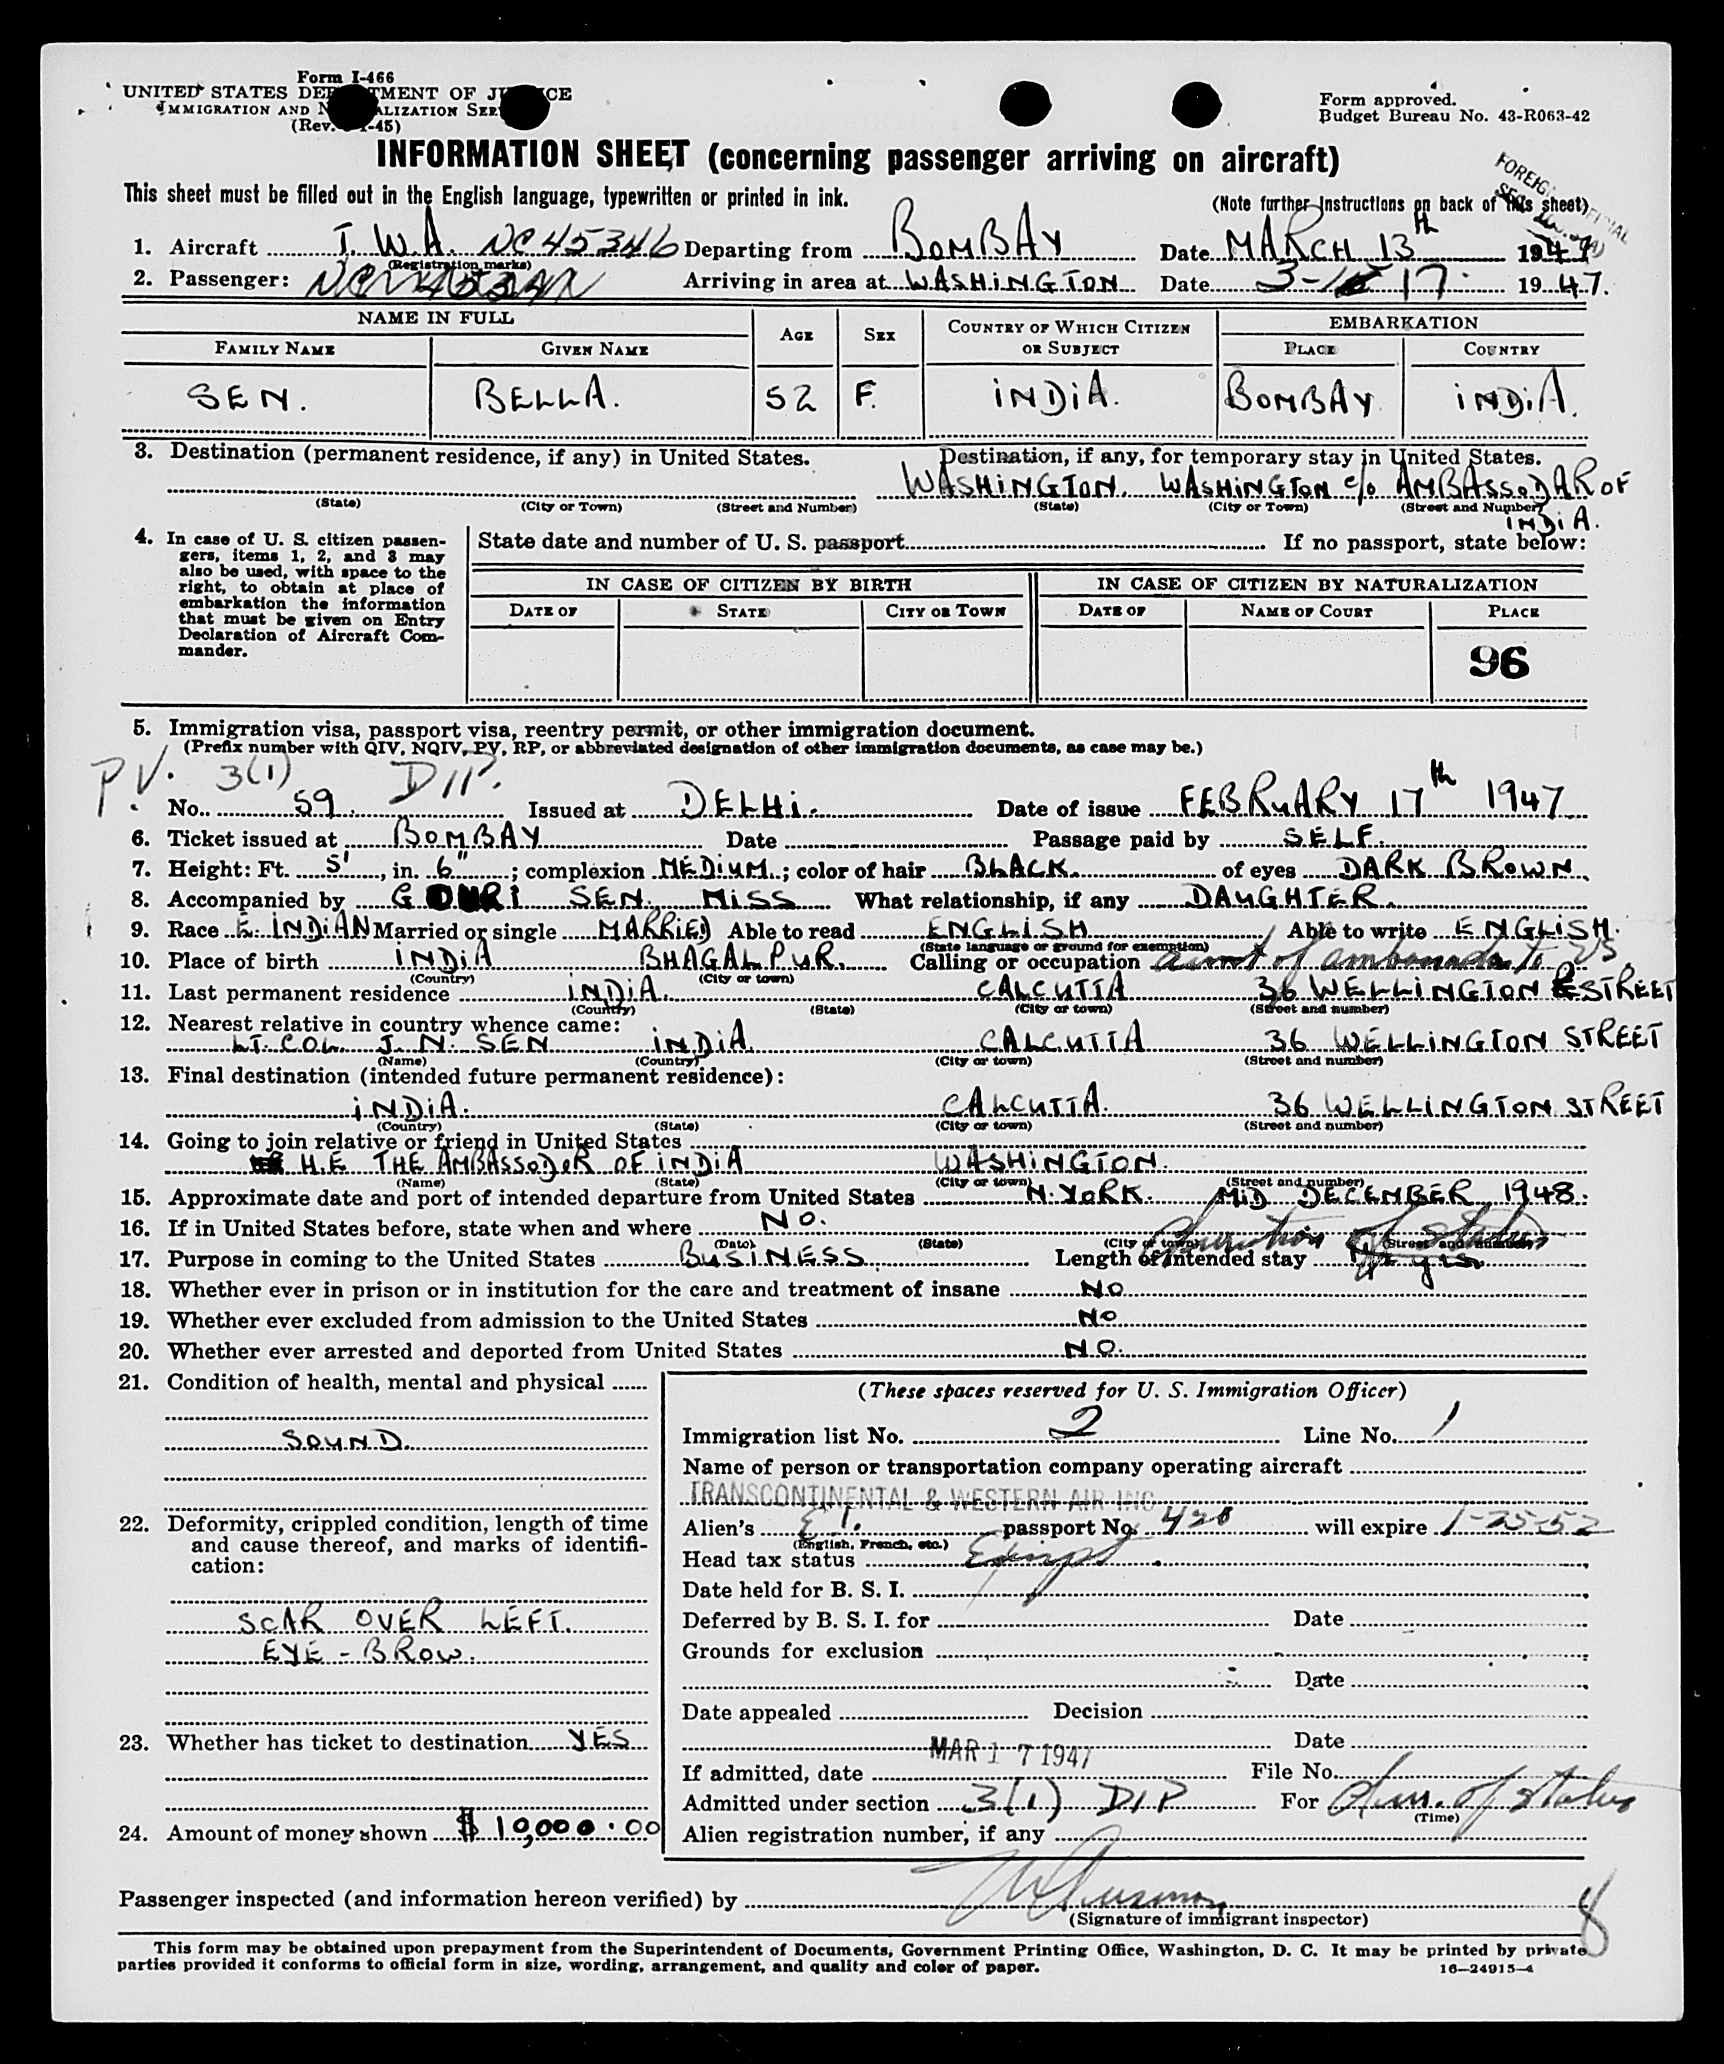 Form I-466
UNITED STATES DEPARTMENT OF JUSTICE
IMMIGRATION AND NATURALIZATION SERVICE
(Rev. -45)
Form approved.
Budget Bureau No. 43-R063-42
INFORMATION SHEET (concerning passenger arriving on aircraft)
This sheet must be filled out in the English language, typewritten or printed in ink.
(Note further instructions on back of this sheet)
1. Aircraft T.W.A. NC45346 Departing from BOMBAY Date MARCH 13th 1947
(Registration marks)
2. Passenger: Arriving in area at WASHINGTON Date 3- 17 1947.
NAME IN FULL AGE SEX COUNTRY OF WHICH CITIZEN OR SUBJECT EMBARKATION
FAMILY NAME GIVEN NAME PLACE COUNTRY
SEN. BELLA. 52 F. INDIA. BOMBAY INDIA.
3. Destination (permanent residence, if any) in United States. Destination, if any, for temporary stay in United States.
WASHINGTON. WASHINGTON c/o AMBASSODAR OF
(State) (City or Town) (Street and Number) (State) (City or Town) (Street and Number)
INDIA.
4. In case of U. S. citizen passengers, items 1, 2, and 3 may also be used, with space to the right, to obtain at place of embarkation the information that must be given on Entry Declaration of Aircraft Commander.
State date and number of U. S. passport If no passport, state below:
IN CASE OF CITIZEN BY BIRTH IN CASE OF CITIZEN BY NATURALIZATION
DATE OF STATE CITY OR TOWN DATE OF NAME OF COURT PLACE
96
5. Immigration visa, passport visa, reentry permit, or other immigration document.
(Prefix number with QIV, NQIV, PV, RP, or abbreviated designation of other immigration documents, as case may be.)
PV. 3(1) DIP.
No. 59. Issued at DELHI. Date of issue FEBRUARY 17th 1947
6. Ticket issued at BOMBAY Date Passage paid by SELF.
7. Height: Ft. 5', in. 6"; complexion MEDIUM.; color of hair BLACK. of eyes DARK BROWN.
8. Accompanied by GOURI SEN. MISS What relationship, if any DAUGHTER.
9. Race E. INDIAN Married or single MARRIED Able to read ENGLISH Able to write ENGLISH.
(State language or ground for exemption)
10. Place of birth INDIA BHAGALPUR. Calling or occupation aunt of ambassador to US.
(Country) (City or town)
11. Last permanent residence INDIA. CALCUTTA 36 WELLINGTON STREET
(Country) (State) (City or town) (Street and number)
12. Nearest relative in country whence came:
LT. COL. J. N. SEN INDIA CALCUTTA 36 WELLINGTON STREET
(Name) (Country) (City or town) (Street and number)
13. Final destination (intended future permanent residence):
INDIA. CALCUTTA. 36 WELLINGTON STREET
(Country) (State) (City or town) (Street and number)
14. Going to join relative or friend in United States
H.E THE AMBASSODOR OF INDIA WASHINGTON.
(Name) (State) (City or town) (Street and number)
15. Approximate date and port of intended departure from United States N. YORK. MID DECEMBER 1948.
16. If in United States before, state when and where NO.
(Date) (State) (City or town) (Street and number)
Duration of status
17. Purpose in coming to the United States BUSINESS. Length of intended stay yrs
18. Whether ever in prison or in institution for the care and treatment of insane NO
19. Whether ever excluded from admission to the United States NO
20. Whether ever arrested and deported from United States NO.
21. Condition of health, mental and physical
SOUND.
22. Deformity, crippled condition, length of time and cause thereof, and marks of identification:
SCAR OVER LEFT.
EYE-BROW.
23. Whether has ticket to destination YES
24. Amount of money shown $ 10,000.00
(These spaces reserved for U. S. Immigration Officer)
Immigration list No. 2 Line No. 1
Name of person or transportation company operating aircraft
TRANSCONTINENTAL & WESTERN AIR INC
Alien's passport No. 420 will expire 1-25-52
(English, French, etc.)
Head tax status Exempt
Date held for B. S. I.
Deferred by B. S. I. for Date
Grounds for exclusion
Date
Date appealed Decision
Date
MAR 17 1947
If admitted, date File No.
Admitted under section 3(1) DIP For Dur. of status
(Time)
Alien registration number, if any
Passenger inspected (and information hereon verified) by
(Signature of immigrant inspector)
8
This form may be obtained upon prepayment from the Superintendent of Documents, Government Printing Office, Washington, D. C. It may be printed by private
parties provided it conforms to official form in size, wording, arrangement, and quality and color of paper.
16—24915-4